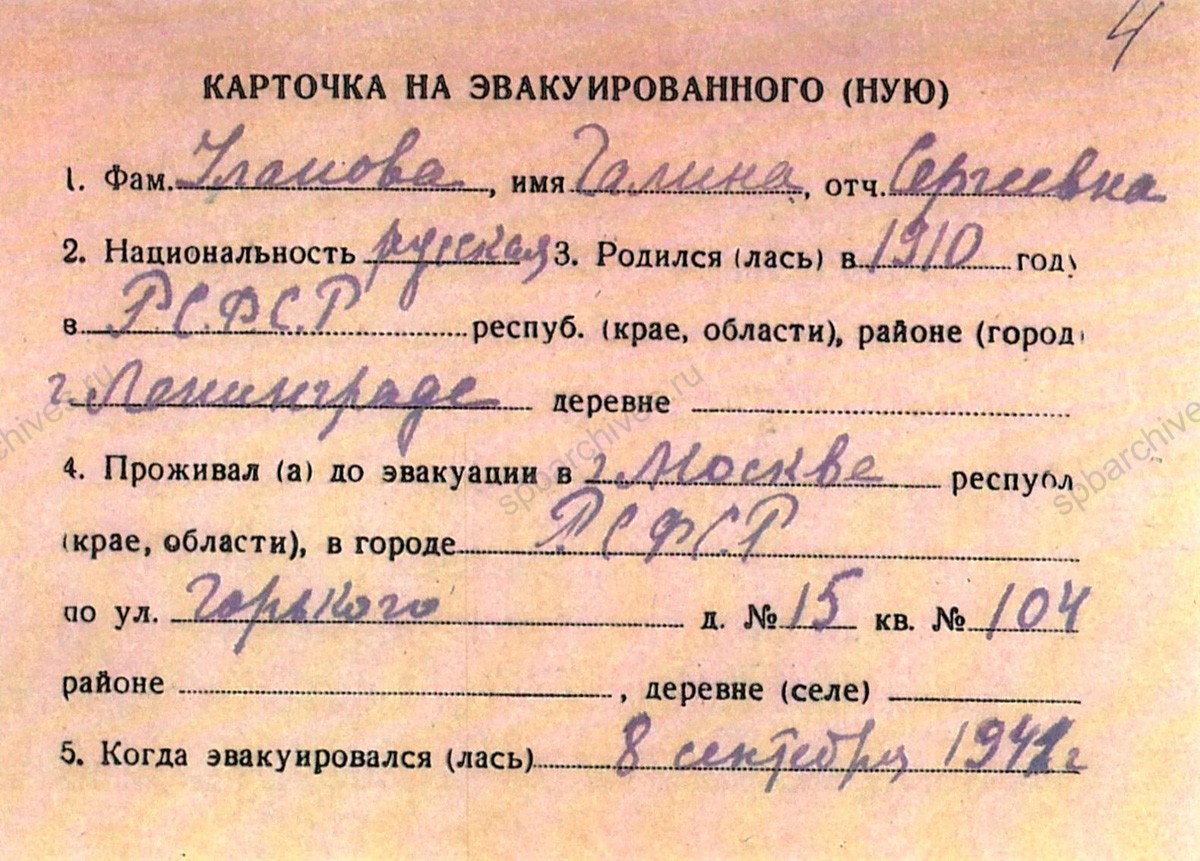 4
КАРТОЧКА НА ЭВАКУИРОВАННОГО (НУЮ)
1. Фам. Уланова, имя Галина, отч. Сергеевна
2. Национальность русская 3. Родился (лась) в 1910 год
в Р.С.Ф.С.Р респуб. (крае, области), районе (город
г. Ленинграде деревне
4. Проживал (а) до эвакуации в г Москве респуб
(крае, области), в городе Р.С.Ф.С.Р
по ул. Горького д. № 15 кв. № 104
районе , деревне (селе)
5. Когда эвакуировался (лась) 8 сентября 1941 г
spbarchives.ru